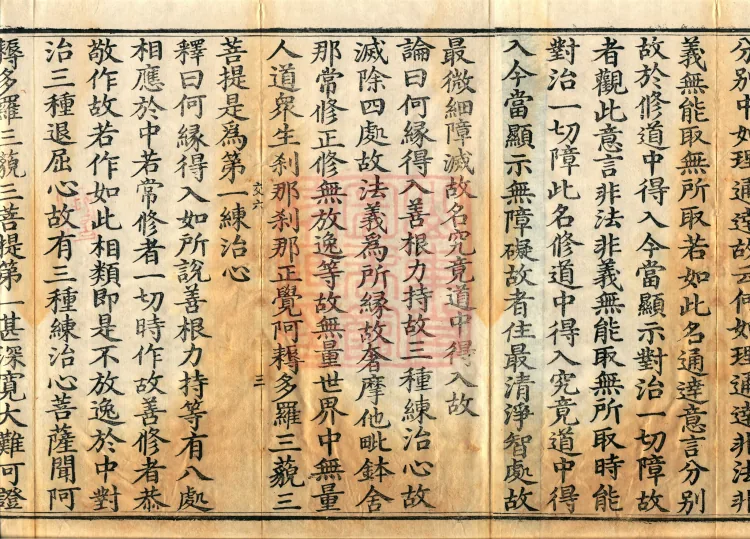 分別中如理通達故云如理通達非法非
義無能取無所取若如此名通達意言分别
故於修道中得入今當顯示對治一切障故
者觀此意言非法非義無能取無所取時能
對治一切障此名修道中得入究竟道中得
入今當顯示無障礙故者住最清淨智處故
最微細障滅故名究竟道中得入故
論曰何緣得入善根力持故三種練治心故
滅除四處故法義爲所緣故奢摩他毗鉢舍
那常修正修無放逸等故無量世界中無量
人道眾生刹那刹那正覺阿耨多羅三藐三
交六 三
菩提是爲第一練治心
釋曰何緣得入如所說善根力持等有八處
相應於中若常修者一切時作故善修者恭
敬作故若作如此相類即是不放逸於中對
治三種退屈心故有三種練治心菩薩聞阿
耨多羅三藐三菩提第一甚深寬大難可證